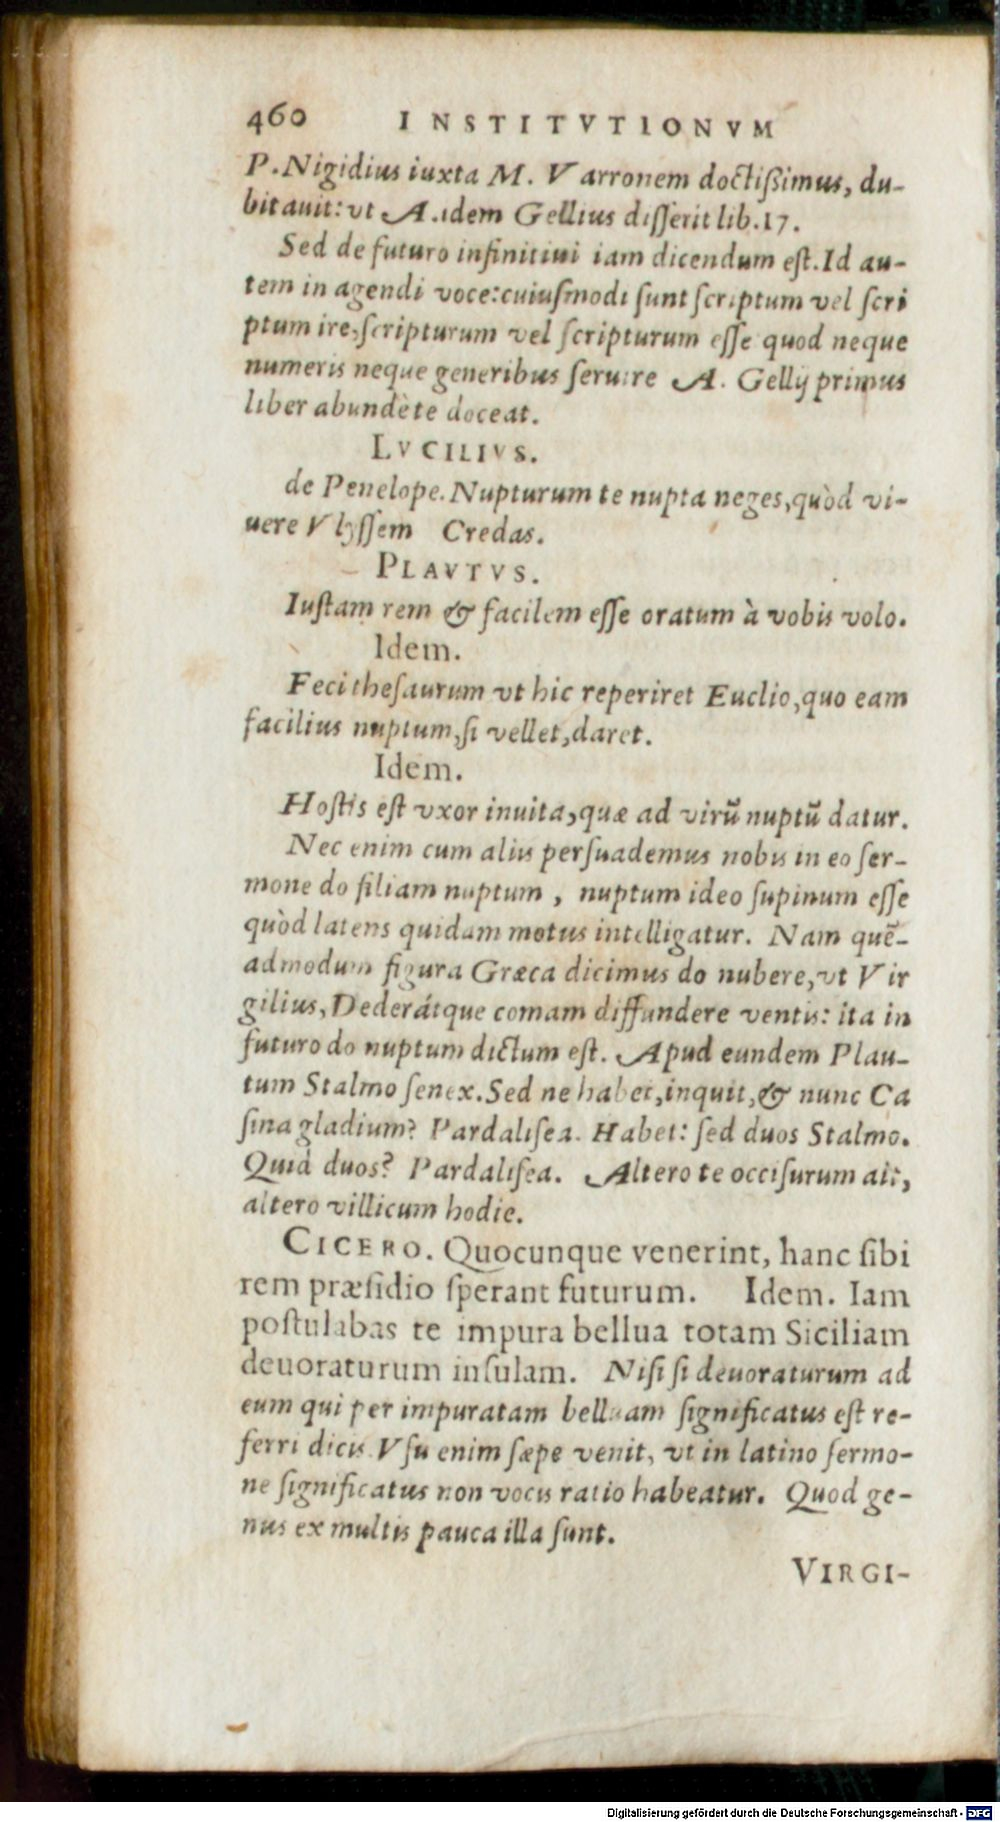 460 INSTITVTIONVM
P. Nigidius iuxta M. Varronem doctißimus, du-
bitauit: vt A. idem Gellius disserit lib. 17.
Sed de futuro infinitiui iam dicendum est. Id au-
tem in agendi voce: cuiusmodi sunt scriptum vel scri
ptum ire, scripturum vel scripturum esse quod neque
numeris neque generibus seruire A. Gellij primus
liber abundè te doceat.
LVCILIVS.
de Penelope. Nupturum te nupta neges, quòd vi-
uere Vlyssem Credas.
PLAVTVS.
Iustam rem & facilem esse oratum à vobis volo.
Idem.
Feci thesaurum vt hic reperiret Euclio, quo eam
facilius nuptum, si vellet, daret.
Idem.
Hostis est vxor inuita, quæ ad virũ nuptũ datur.
Nec enim cum aliis persuademus nobis in eo ser-
mone do filiam nuptum, nuptum ideo supinum esse
quòd latens quidam motus intelligatur. Nam quẽ-
admodum figura Græca dicimus do nubere, vt Vir
gilius, Dederátque comam diffundere ventis: ita in
futuro do nuptum dictum est. Apud eundem Plau-
tum Stalmo senex. Sed ne habet, inquit, & nunc Ca
sina gladium? Pardalisca. Habet: sed duos Stalmo.
Quid duos? Pardalisca. Altero te occisurum ait,
altero villicum hodie.
CICERO. Quocunque venerint, hanc sibi
rem præsidio sperant futurum. Idem. Iam
postulabas te impura bellua totam Siciliam
deuoraturum insulam. Nisi si deuoraturum ad
eum qui per impuratam belluam significatus est re-
ferri dicis. Vsu enim sæpe venit, vt in latino sermo-
ne significatus non vocis ratio habeatur. Quod ge-
nus ex multis pauca illa sunt.
VIRGI-
Digitalisierung gefördert durch die Deutsche Forschungsgemeinschaft - DFG